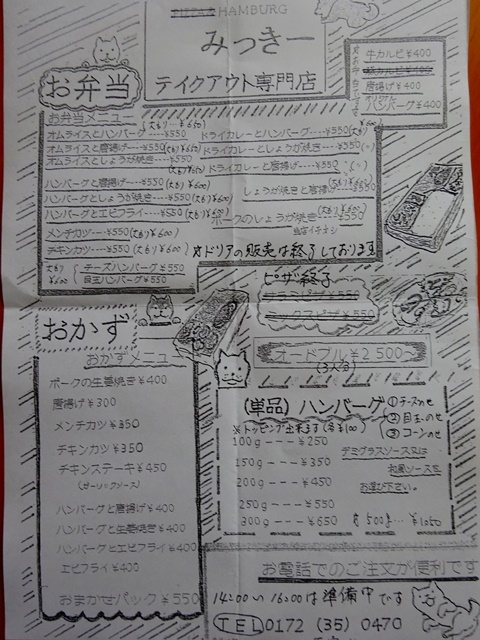 HAMBURG
みっきー
テイクアウト専門店
お弁当
牛カルビ¥400
唐揚げ ¥400
ハンバーグ¥400
お弁当メニュー
オムライスとハンバーグ----¥550 (大もり…¥650)
オムライスと唐揚げ----¥550
オムライスとしょうが焼き--¥550
ハンバーグと唐揚げ----¥550(大もり¥600)
ハンバーグとしょうが焼き--¥550(大もり¥600)
ハンバーグとエビフライ----¥550(大もり¥600)
メンチカツ---¥550(大もり¥600)
チキンカツ---¥550(大もり¥600)
大もり ¥600
チーズハンバーグ¥550
目玉ハンバーグ¥550
ドライカレーとハンバーグ----¥550
ドライカレーと唐揚げ
ドライカレーと唐揚げ ¥550
しょうが焼きと唐揚げ ¥550(大もり¥600)
ポークのしょうが焼き ¥550(大もり¥600)
当店イチオシ
ドリアの販売は終了しております
ピザ終了
オードブル¥2500~
(3人分)
おかず
おかずメニュー
ポークの生姜焼き¥400
唐揚げ¥300
メンチカツ¥350
チキンカツ¥350
チキンステーキ¥450
(ガーリックソース)
ハンバーグと唐揚げ¥400
ハンバーグと生姜焼き¥400
ハンバーグとエビフライ¥400
エビフライ¥400
おまかせパック¥550
(単品) ハンバーグ
①チーズのせ
②目玉のせ
③コーンのせ
※トッピング出来ます(各¥100)
100g---¥250
150g---¥350
200g---¥450
250g---¥550
300g---¥650
500g…¥1050
デミグラスソース又は
和風ソースを
お選び下さい。
お電話でのご注文が便利です
14:00〜16:00は準備中です
TEL 0172 (35) 0470